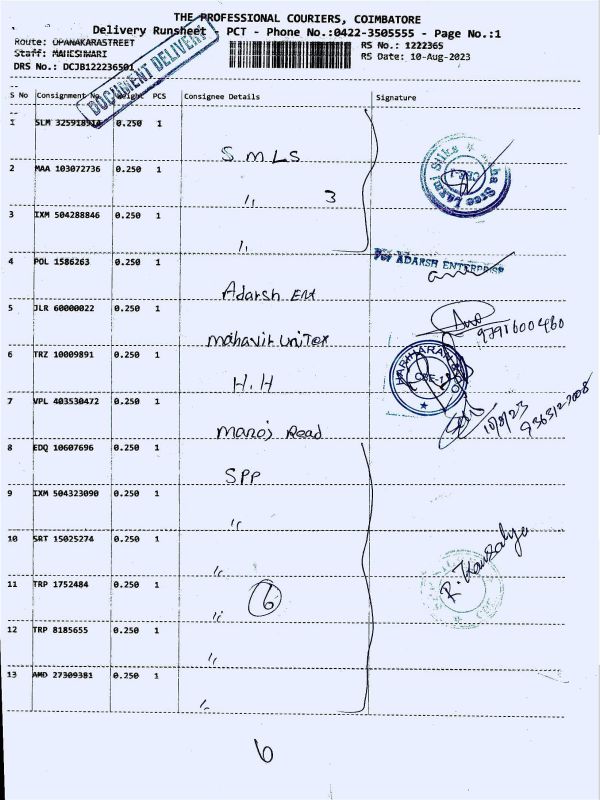 THE PROFESSIONAL COURIERS, COIMBATORE
Delivery Runsheet PCT - Phone No.:0422-3505555 - Page No.:1
Route: OPANAKARASTREET
RS No.: 1222365
Staff: MAHESHWARI
RS Date: 10-Aug-2023
DRS No.: DCJB122236501
DOCUMENT DELIVERY
S No Consignment No Weight PCS Consignee Details Signature
1 SLM 0.250 1
S.M.L.S
2 MAA 103072736 0.250 1
" 3
3 IXM 504288846 0.250 1
"
4 POL 1586263 0.250 1
For ADARSH ENTERPRISE
Adarsh Ent
5 JLR 60000022 0.250 1
Mahavir Unitex
9791600460
6 TRZ 10009891 0.250 1
HARIHARAN
H.H
7 VPL 403530472 0.250 1
Manoj Read
10/8/23
8 EDQ 10607696 0.250 1
SPP
9 IXM 504323090 0.250 1
"
10 SRT 15025274 0.250 1
"
R. Kousalya
11 TRP 1752484 0.250 1
6
"
12 TRP 8185655 0.250 1
"
13 AMD 27309381 0.250 1
"
6